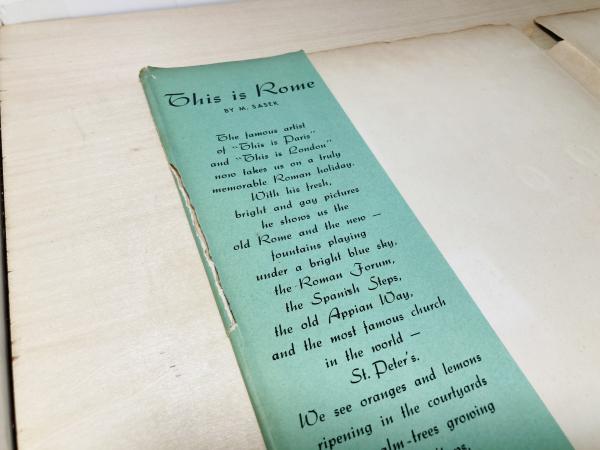 This is Rome
BY M. SASEK
The famous artist
of "This is Paris"
and "This is London"
now takes us on a truly
memorable Roman holiday.
With his fresh,
bright and gay pictures
he shows us the
old Rome and the new —
fountains playing
under a bright blue sky,
the Roman Forum,
the Spanish Steps,
the old Appian Way,
and the most famous church
in the world —
St. Peter's.
We see oranges and lemons
ripening in the courtyards
alm-trees growing